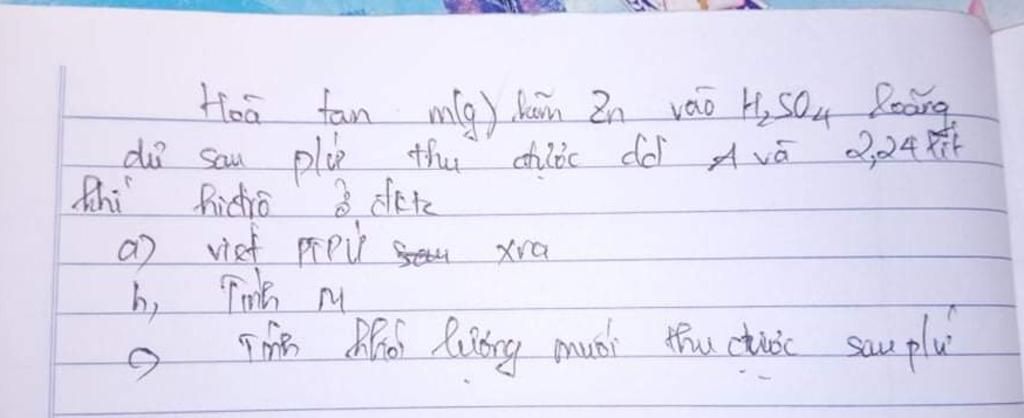 Hoà tan m(g) kẽm Zn vào H₂SO₄ loãng
dư sau pư thu được dd A và 2,24 lít
khí hiđrô ở đktc
a) viết PTPƯ xra
b, Tính m
c) Tính khối lượng muối thu được sau pư